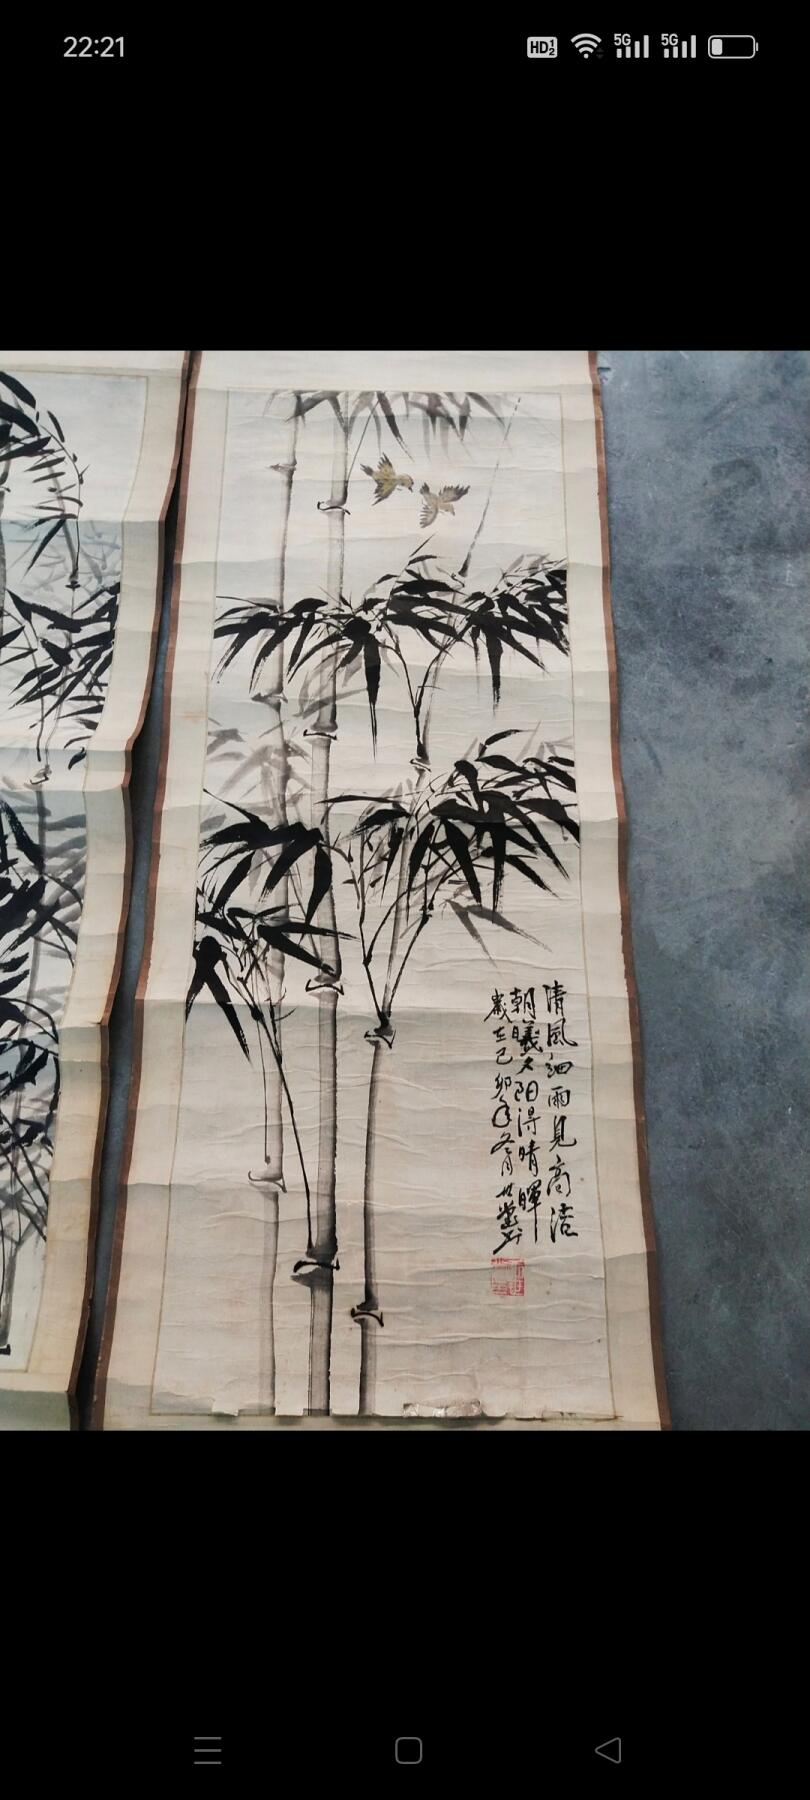 22:21
HD 1 2
5G
5G
清風細雨見高洁
朝曦夕阳得晴暉
歲在己卯年冬月世黨